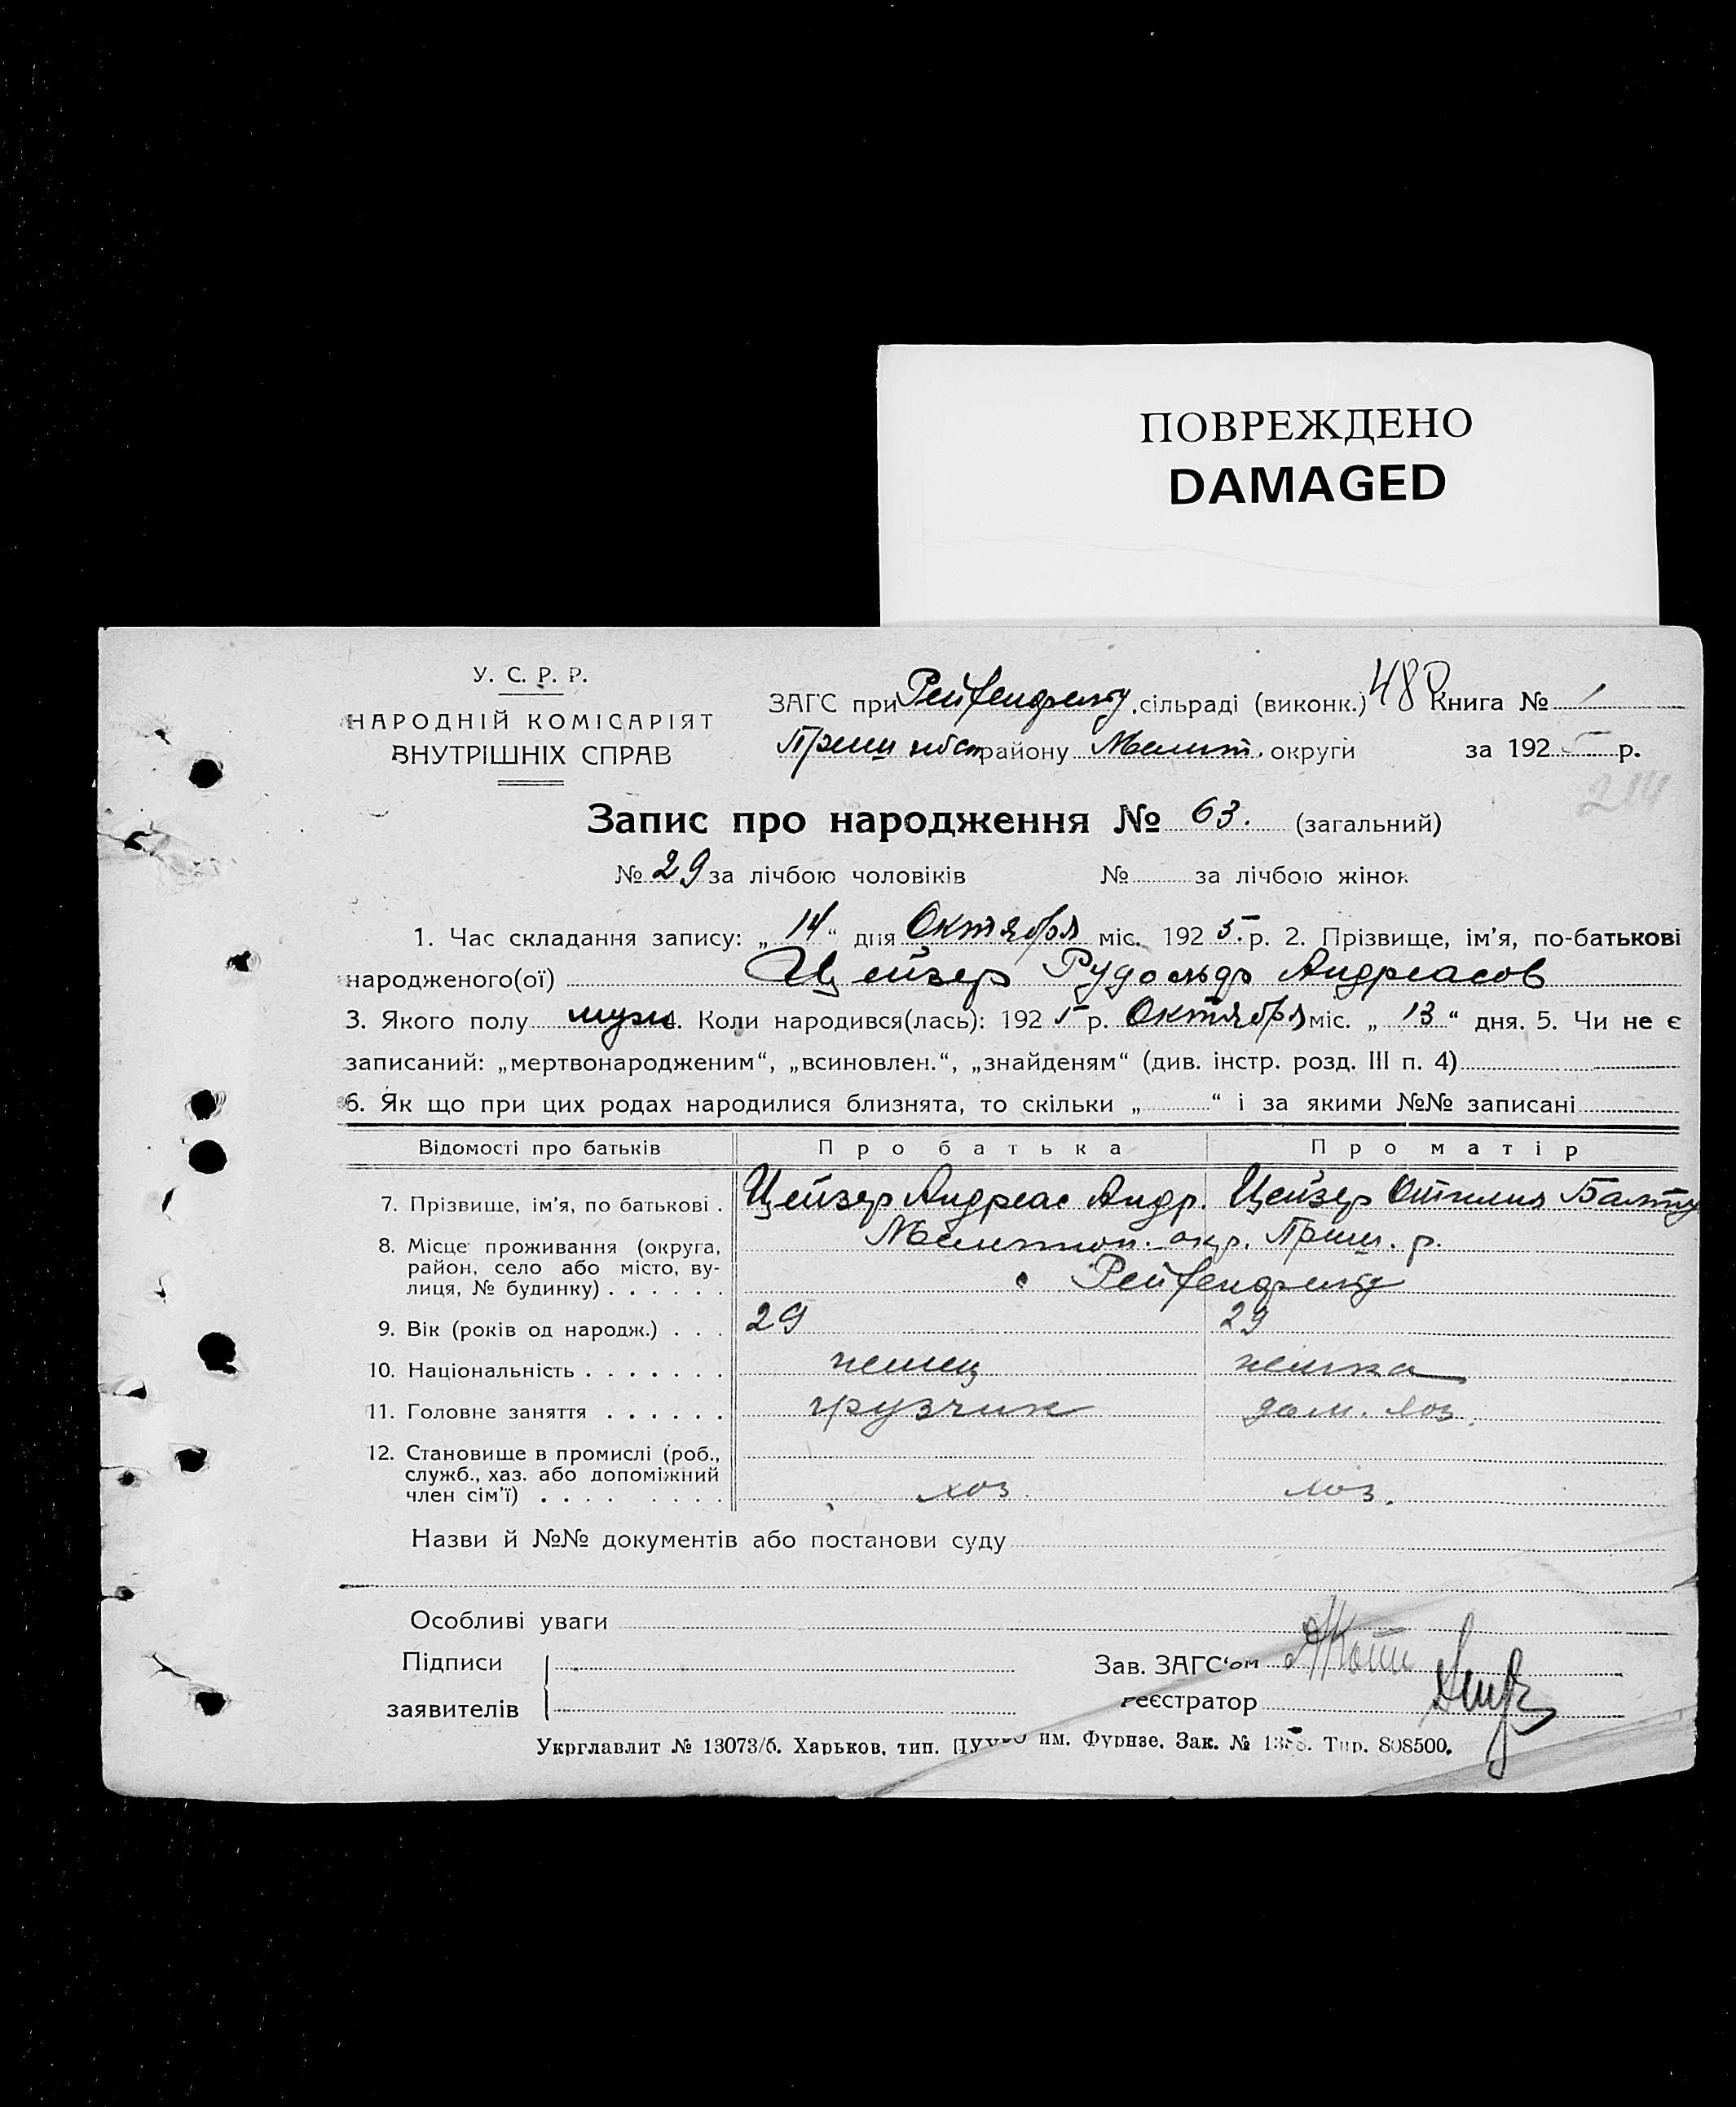 ПОВРЕЖДЕНО
DAMAGED
У. С. Р. Р.
НАРОДНІЙ КОМІСАРІЯТ
ВНУТРІШНІХ СПРАВ
ЗАГС при сільраді (виконк.) 48 Книга №
Приш району Мелит. округи за 1925 р.
Запис про народження № 63. (загальний)
№ 29 за лічбою чоловіків № за лічбою жінок
1. Час складання запису: „14“ дня Октября міс. 1925. р. 2. Прізвище, ім’я, по-батькові
народженого(ої) Цейзер Рудольф Андреасов
3. Якого полу муж 4. Коли народився(лась): 1925 р. Октября міс. „13“ дня. 5. Чи не є
записаний: „мертвонародженим“, „всиновлен.“, „знайденям“ (див. інстр. розд. III п. 4)
6. Як що при цих родах народилися близнята, то скільки „ “ і за якими №№ записані
Відомості про батьків Про батька Про матір
7. Прізвище, ім’я, по батькові . Цейзер Андреас Андр. Цейзер Отилия
8. Місце проживання (округа, Мелитоп. окр. Приш. р.
район, село або місто, ву-
лиця, № будинку) . . . . . . с
9. Вік (років од народж.) . . . 29 29
10. Національність . . . . . . . немец немка
11. Головне заняття . . . . . . грузчик дом. хоз.
12. Становище в промислі (роб.,
служб., хаз. або допоміжний
член сім’ї) . . . . . . . . хоз. хоз.
Назви й №№ документів або постанови суду
Особливі уваги
Підписи
заявителів
Зав. ЗАГС‘ом
реєстратор
Укрглавлит № 13073/б. Харьков, тип. им. Фрунзе. Зак. № Тир. 808500.